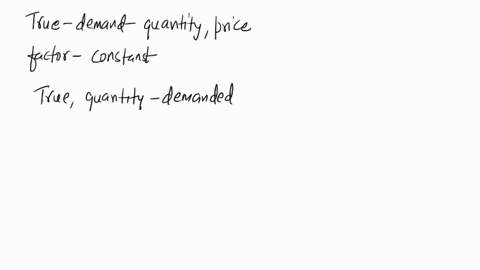 True-demand-quantity, price
factor- constant
True, quantity-demanded